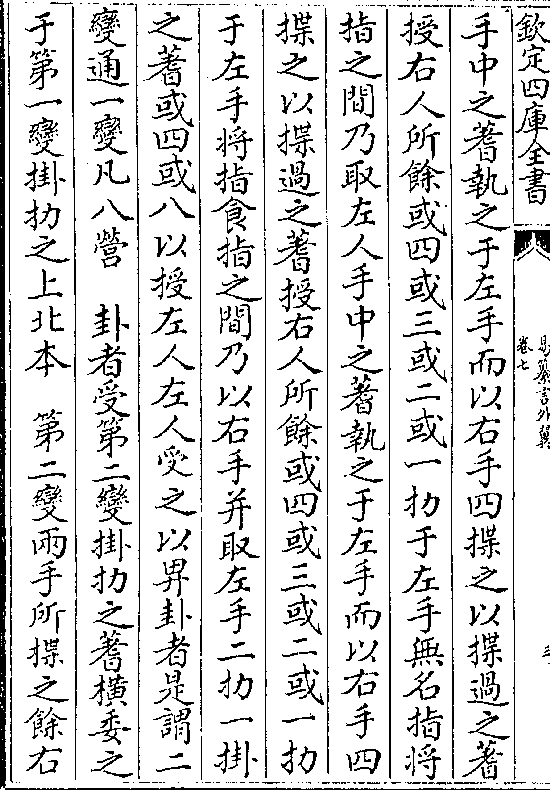 欽定四庫全書
易纂言外翼
卷七
手中之蓍執之于左手而以右手四揲之以揲過之蓍
授右人所餘或四或三或二或一扐于左手無名指將
指之間乃取左人手中之蓍執之于左手而以右手四
揲之以揲過之蓍授右人所餘或四或三或二或一扐
于左手将指食指之間乃以右手并取左手二扐一掛
之蓍或四或八以授左人左人受之以畀卦者是謂二
變通一變凡八營　卦者受第二變掛扐之蓍橫委之
于第一變掛扐之上北本　第二變兩手所揲之餘右